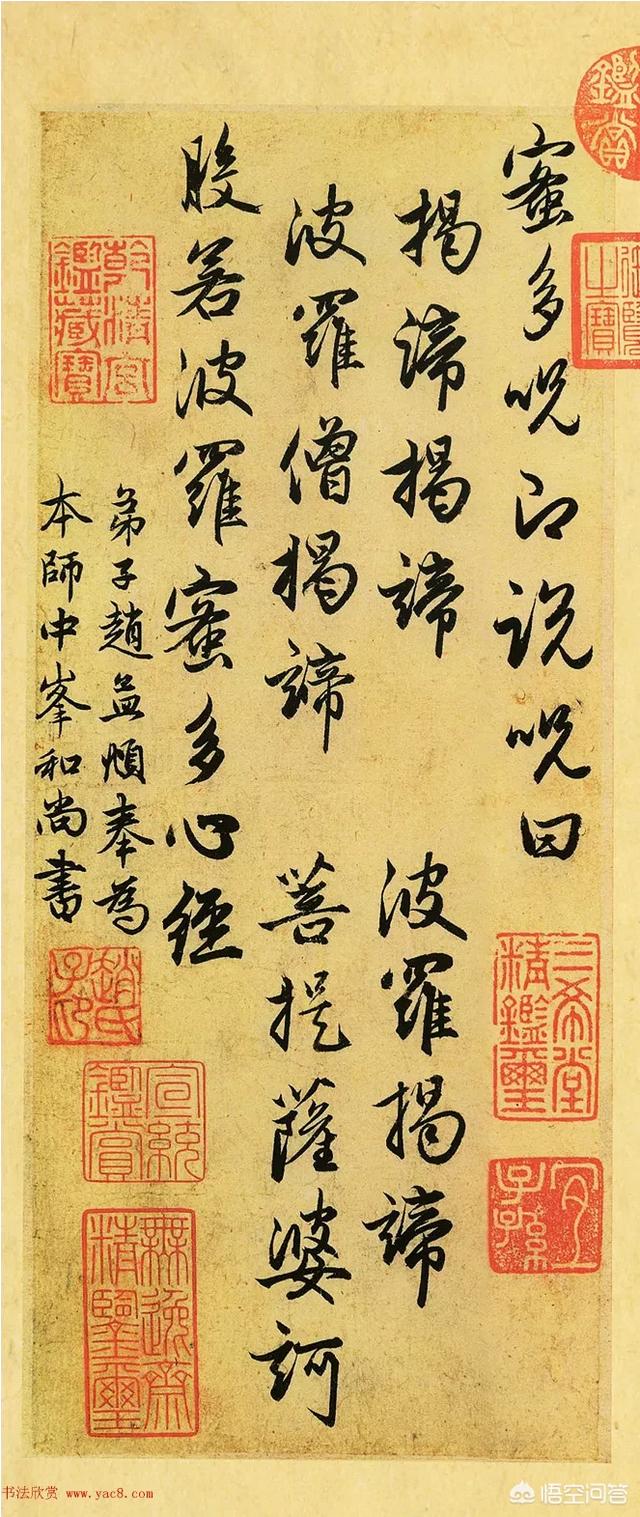 鑑賞
御覽之寶
蜜多呪即說呪曰
三希堂精鑑璽
宜子孫
揭諦揭諦 波羅揭諦
波羅僧揭諦 菩提薩婆訶
般若波羅蜜多心經
弟子趙孟頫奉為
本師中峯和尚書
乾清宮鑑藏寶
趙氏子印
宣統鑑賞
無逸齋精鑒璽
书法欣赏 www.yac8.com
悟空问答